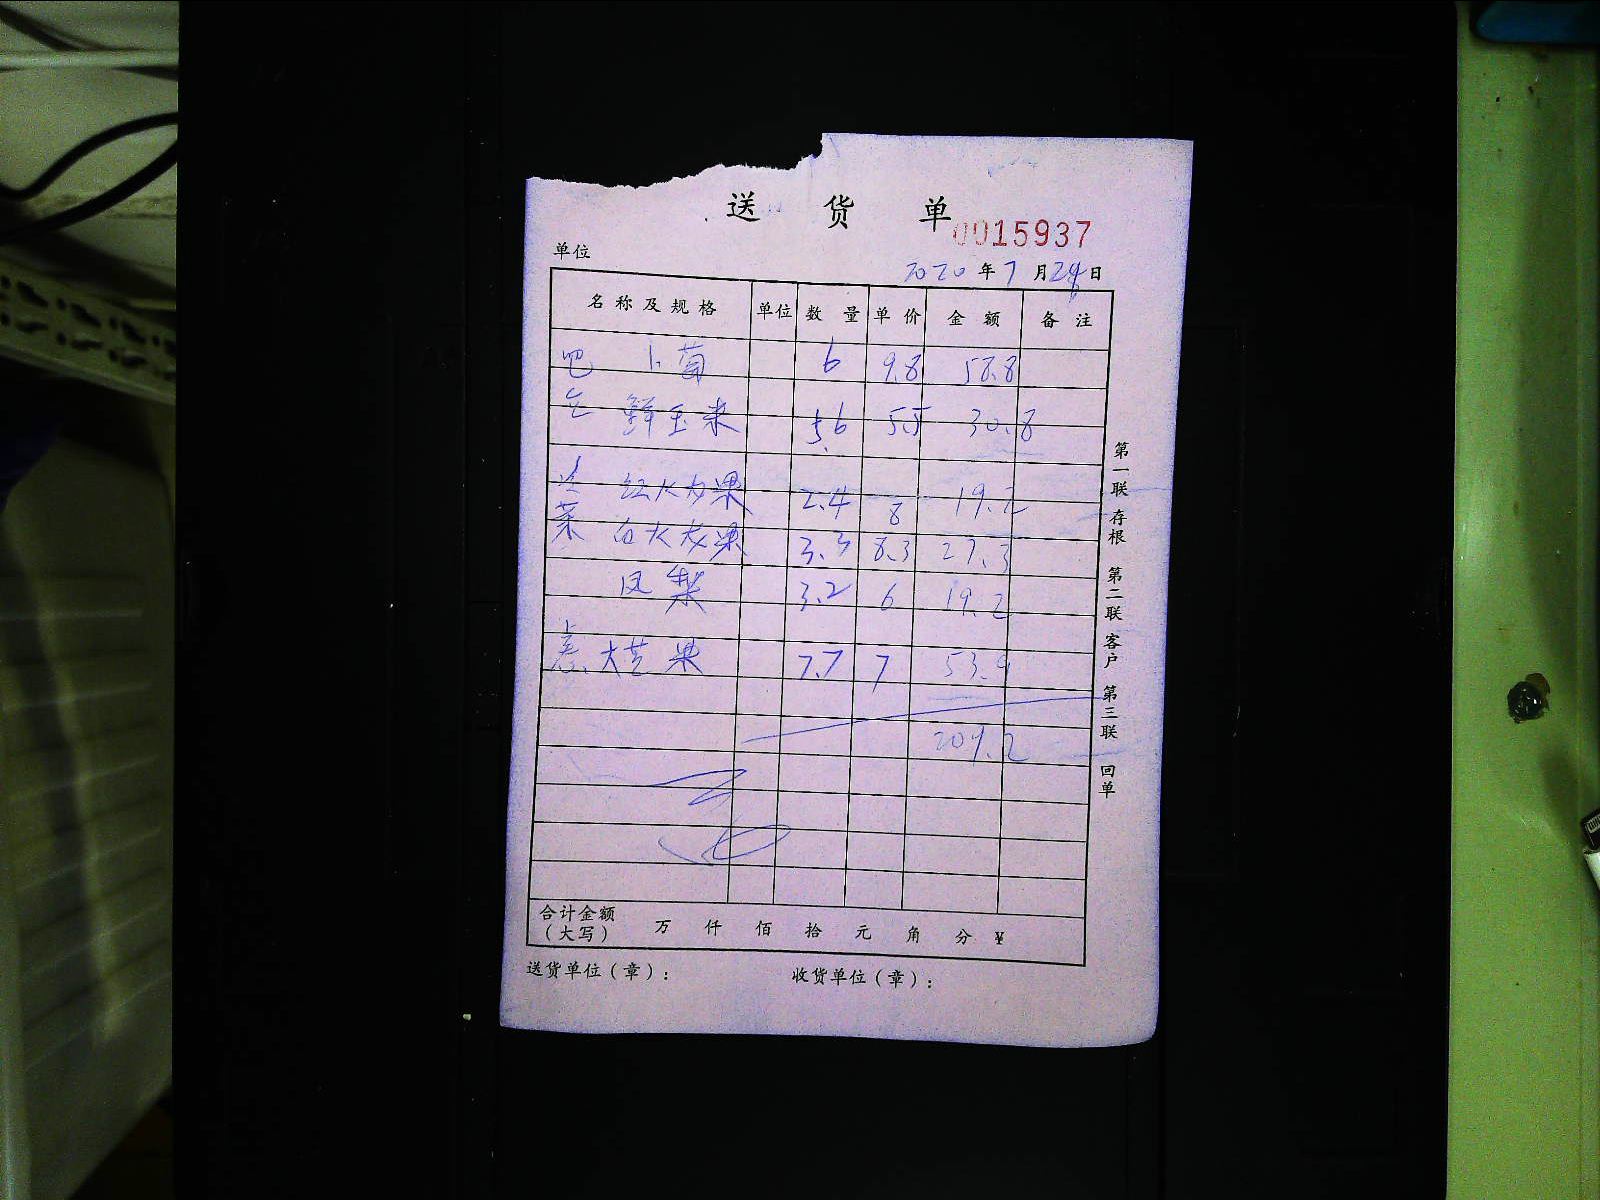 送 货 单
0015937
单位
2020 年 7 月 26 日
名称及规格 单位 数量 单价 金额 备注
吧 卜萄 6 9.8 58.8
鲜玉米 5.6 5.5 30.8
红火龙果 2.4 8 19.2
菜 白火龙果 3.3 8.3 27.3
凤梨 3.2 6 19.2
大芒果 7.7 7 53.9
209.2
合计金额（大写） 万 仟 佰 拾 元 角 分 ¥
送货单位（章）： 收货单位（章）：
第一联 存根 第二联 客户 第三联 回单